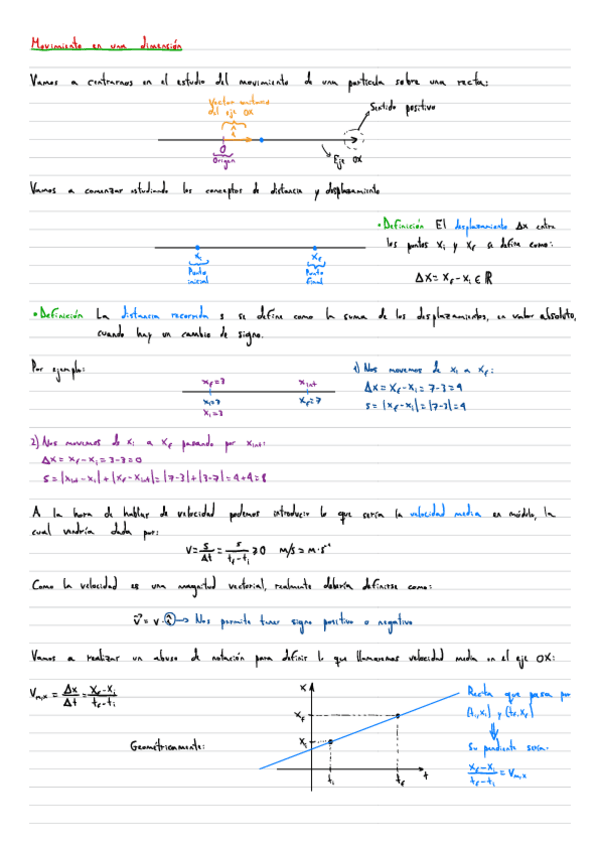 Movimiento en una dimensión
Vamos a centrarnos en el estudio del movimiento de una partícula sobre una recta:
Vector unitario
del eje OX
Sentido positivo
î
O
Origen
Eje OX
Vamos a comenzar estudiando los conceptos de distancia y desplazamiento
• Definición El desplazamiento Δx entre
los puntos xᵢ y x_f se define como:
xᵢ
x_f
Punto
inicial
Punto
final
Δx = x_f - xᵢ ∈ ℝ
• Definición La distancia recorrida s se define como la suma de los desplazamientos, en valor absoluto,
cuando hay un cambio de signo.
Por ejemplo:
1) Nos movemos de xᵢ a x_f:
x_f=3
x_int
Δx = x_f - xᵢ = 7-3=4
xᵢ=3
x_f=7
xᵢ=3
s = |x_f - xᵢ| = |7-3| = 4
2) Nos movemos de xᵢ a x_f pasando por x_int:
Δx = x_f - xᵢ = 3-3=0
s = |x_int - xᵢ| + |x_f - x_int| = |7-3| + |3-7| = 4+4=8
A la hora de hablar de velocidad podemos introducir lo que sería la velocidad media en módulo, la
cual vendría dada por:
v = s/Δt = s/(t_f - tᵢ) ≥ 0 m/s = m·s⁻¹
Como la velocidad es una magnitud vectorial, realmente debería definirse como:
v⃗ = v · î → Nos permite tener signo positivo o negativo
Vamos a realizar un abuso de notación para definir lo que llamaremos velocidad media en el eje OX:
V_m,x = Δx/Δt = (x_f - xᵢ)/(t_f - tᵢ)
Geométricamente:
x
x_f
xᵢ
tᵢ
t_f
t
Recta que pasa por
(tᵢ, xᵢ) y (t_f, x_f)
Su pendiente será:
(x_f - xᵢ)/(t_f - tᵢ) = V_m,x